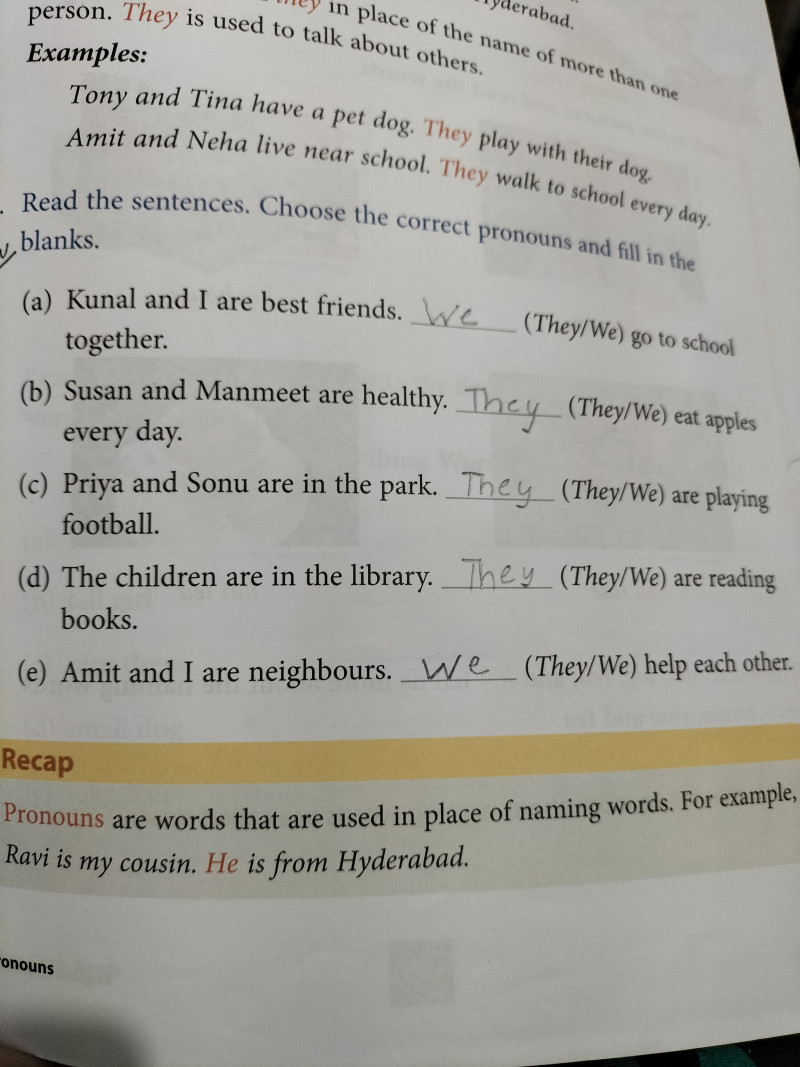 yderabad.
They in place of the name of more than one
person. They is used to talk about others.
Examples:
Tony and Tina have a pet dog. They play with their dog.
Amit and Neha live near school. They walk to school every day.
Read the sentences. Choose the correct pronouns and fill in the
blanks.
(a) Kunal and I are best friends. We (They/We) go to school
together.
(b) Susan and Manmeet are healthy. They (They/We) eat apples
every day.
(c) Priya and Sonu are in the park. They (They/We) are playing
football.
(d) The children are in the library. They (They/We) are reading
books.
(e) Amit and I are neighbours. We (They/We) help each other.
Recap
Pronouns are words that are used in place of naming words. For example,
Ravi is my cousin. He is from Hyderabad.
onouns